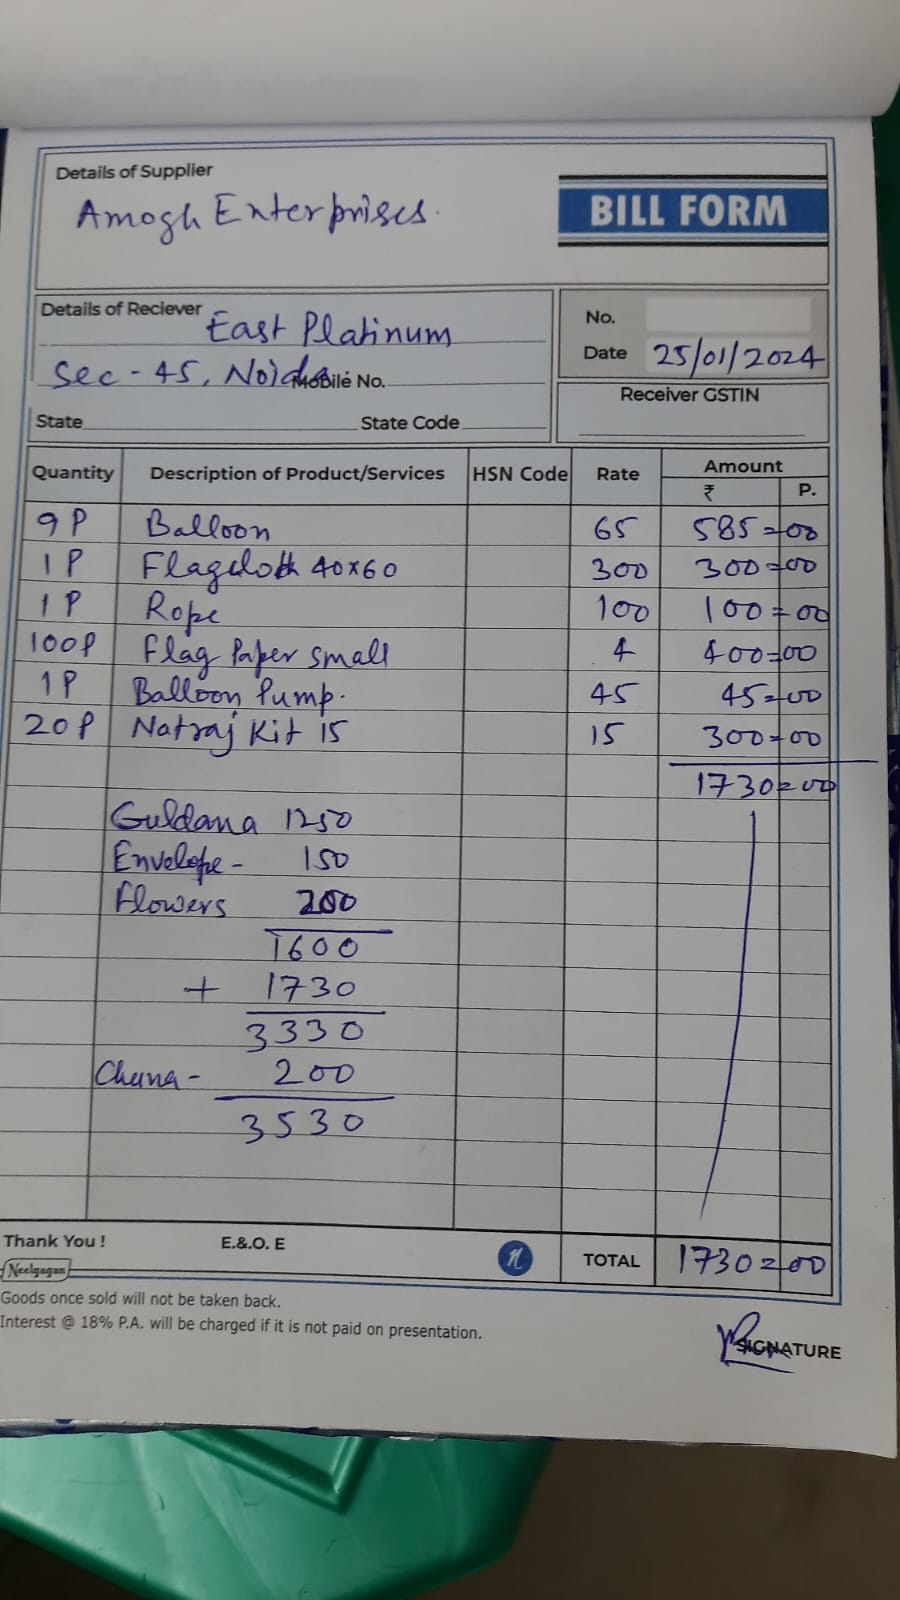 Details of Supplier
Amogh Enterprises.
BILL FORM
Details of Reciever East Platinum
Sec-45, Noida Mobile No.
No.
Date 25/01/2024
Receiver GSTIN
State State Code
Quantity Description of Product/Services HSN Code Rate Amount
₹ P.
9P Balloon 65 585=00
1P Flagcloth 40x60 300 300=00
1P Rope 100 100=00
100P Flag Paper small 4 400=00
1P Balloon Pump. 45 45=00
20P Natraj Kit 15 15 300=00
1730=00
Guldana 1250
Envelope - 150
Flowers 200
1600
+ 1730
3330
Chuna - 200
3530
Thank You ! E.&.O. E n TOTAL 1730=00
Neelgagan
Goods once sold will not be taken back.
Interest @ 18% P.A. will be charged if it is not paid on presentation.
SIGNATURE